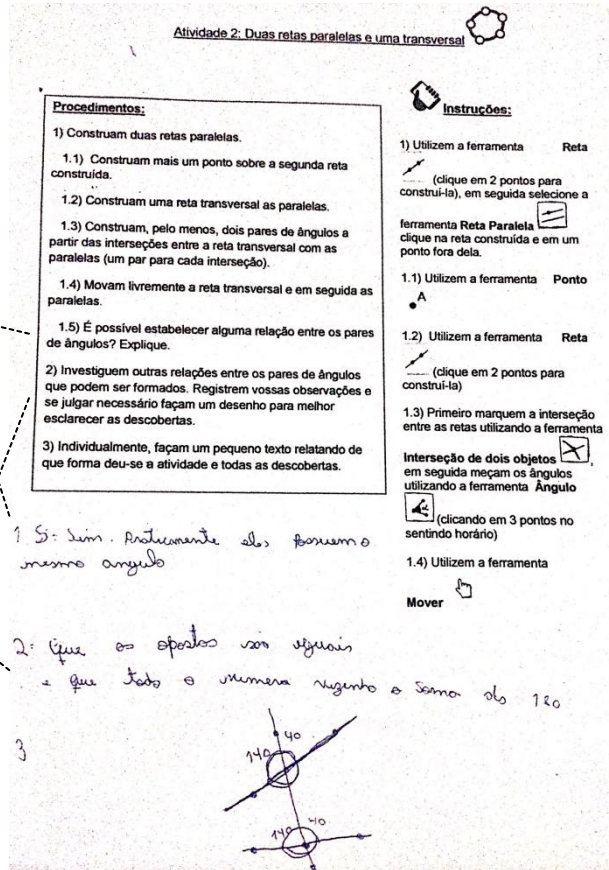 Atividade 2: Duas retas paralelas e uma transversal
Procedimentos:
1) Construam duas retas paralelas.
1.1) Construam mais um ponto sobre a segunda reta
construída.
1.2) Construam uma reta transversal as paralelas.
1.3) Construam, pelo menos, dois pares de ângulos a
partir das interseções entre a reta transversal com as
paralelas (um par para cada interseção).
1.4) Movam livremente a reta transversal e em seguida as
paralelas.
1.5) É possível estabelecer alguma relação entre os pares
de ângulos? Explique.
2) Investiguem outras relações entre os pares de ângulos
que podem ser formados. Registrem vossas observações e
se julgar necessário façam um desenho para melhor
esclarecer as descobertas.
3) Individualmente, façam um pequeno texto relatando de
que forma deu-se a atividade e todas as descobertas.
Instruções:
1) Utilizem a ferramenta Reta
(clique em 2 pontos para
construí-la), em seguida selecione a
ferramenta Reta Paralela
clique na reta construída e em um
ponto fora dela.
1.1) Utilizem a ferramenta Ponto
A
1.2) Utilizem a ferramenta Reta
(clique em 2 pontos para
construí-la)
1.3) Primeiro marquem a interseção
entre as retas utilizando a ferramenta
Interseção de dois objetos ,
em seguida meçam os ângulos
utilizando a ferramenta Ângulo
(clicando em 3 pontos no
sentido horário)
1.4) Utilizem a ferramenta
Mover
1 5= Sim. Praticamente eles possuem o
mesmo angulo
2= Que os opostos são iguais
e que todo o numero vizinho a soma
3
140 40
140 40